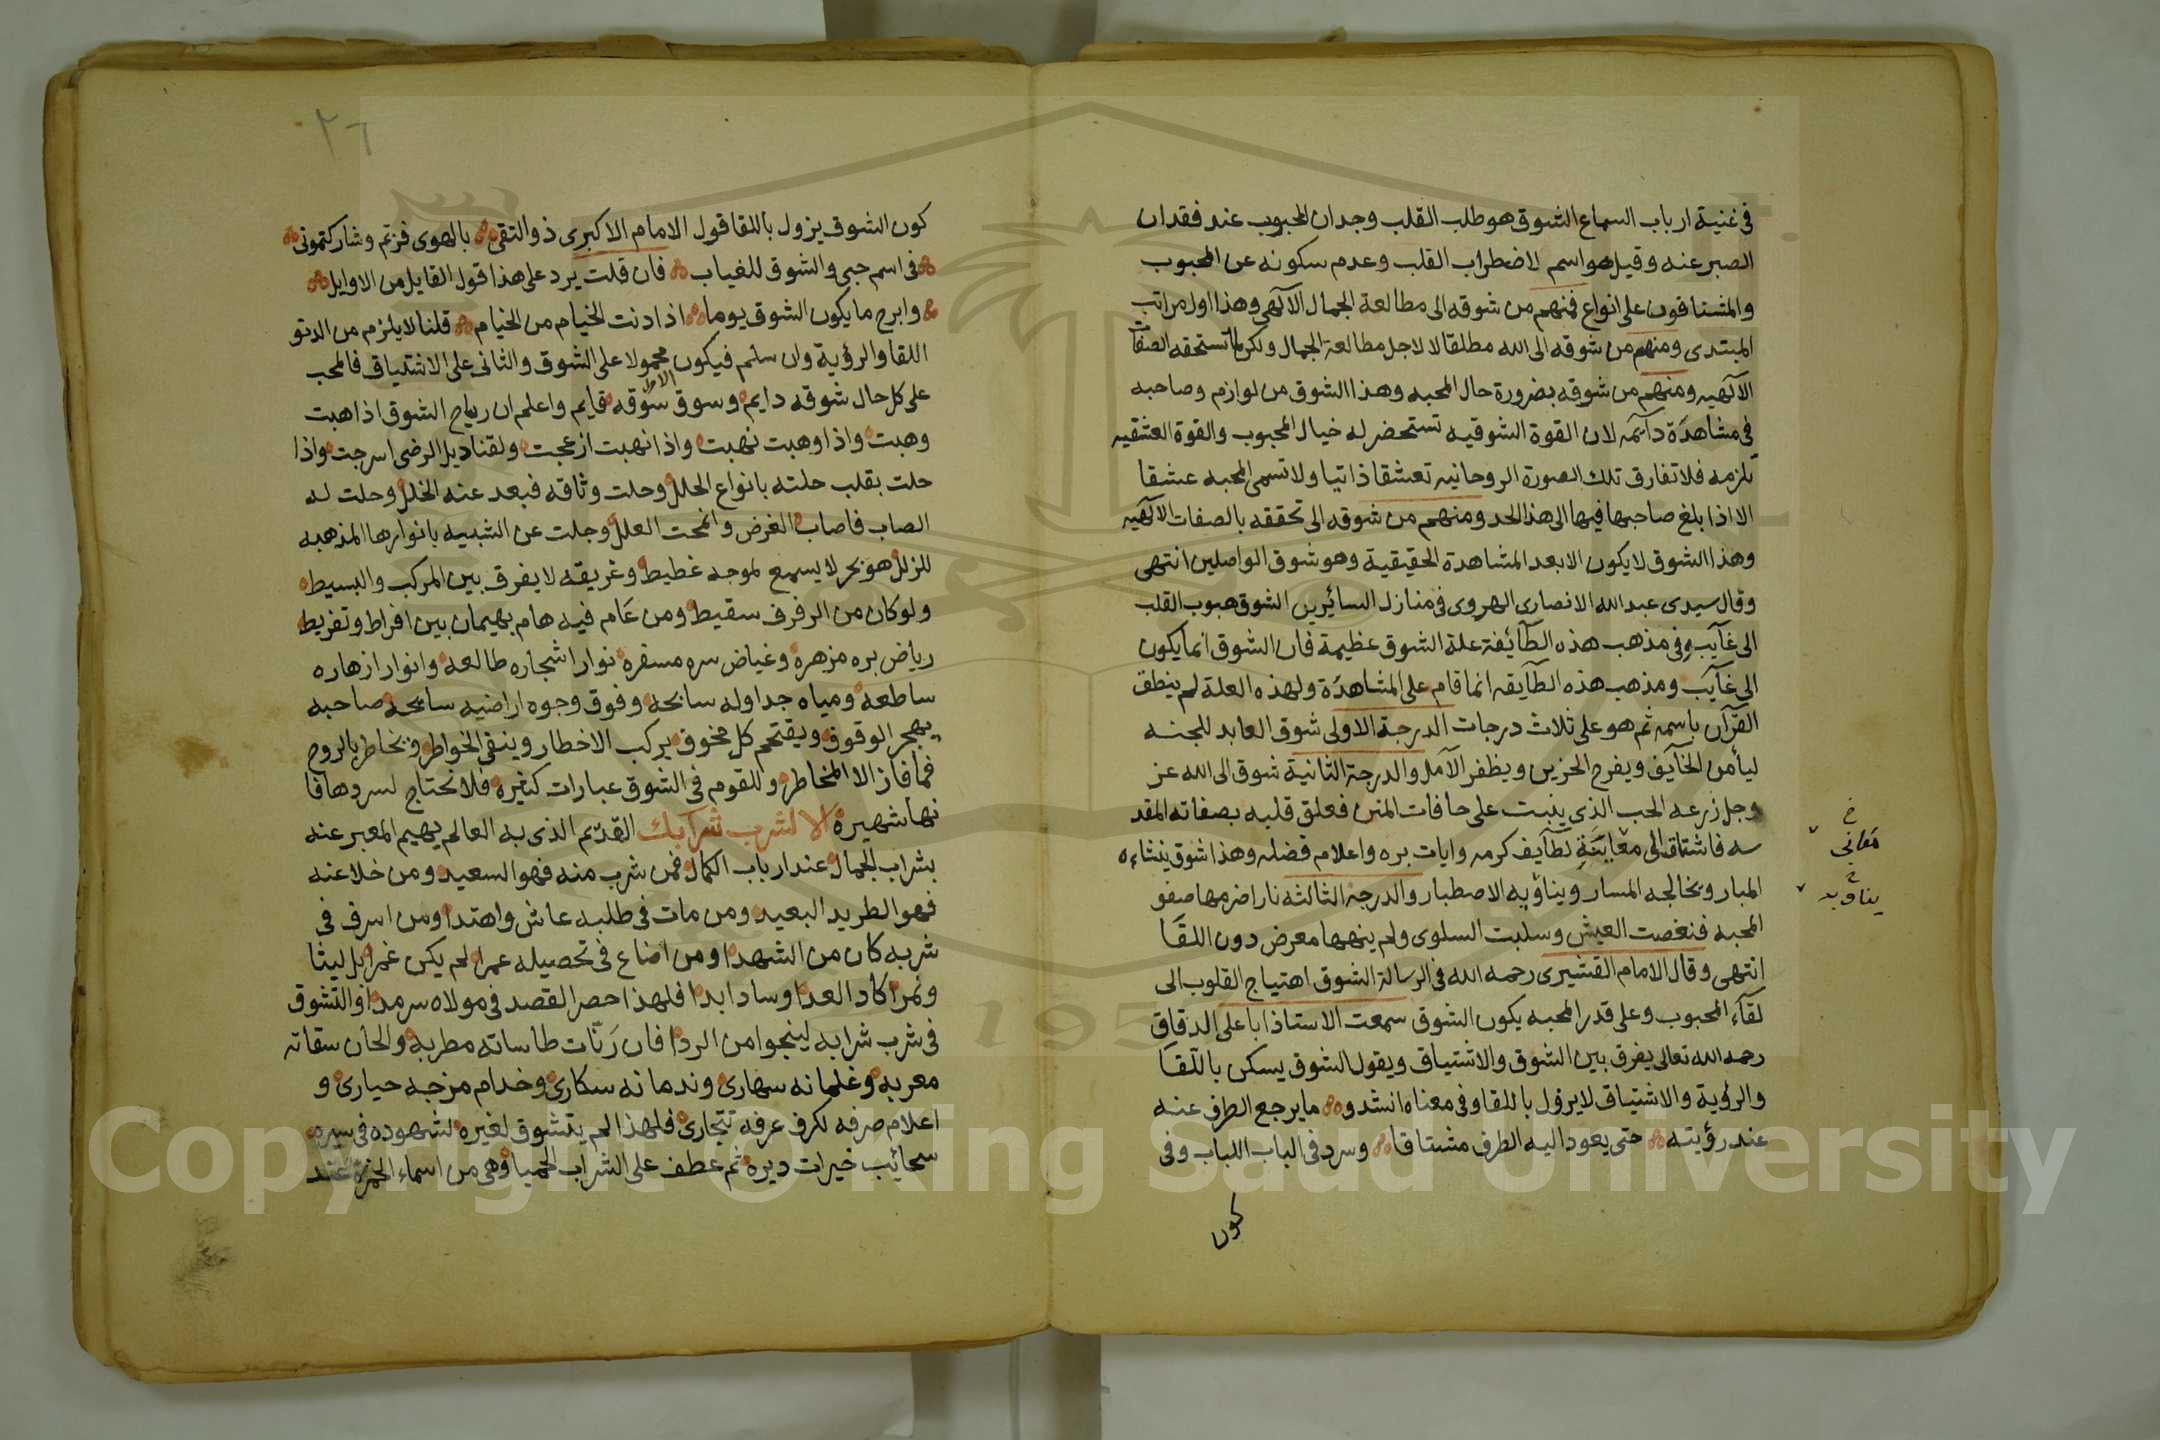 فى غنية ارباب السماع الشوق هو طلب القلب وجدان المحبوب عند فقدان
الصبر عنه وقيل هو اسم لاضطراب القلب وعدم سكونه عن المحبوب
والمشتاقون على انواع فمنهم من شوقه الى مطالعة الجمال الالهى وهذا اول مراتب
المبتدى ومنهم من شوقه الى الله مطلقا لا لاجل مطالعة الجمال ولكن لما تستحقه الصفات
الالهيه ومنهم من شوقه بضرورة حال المحبه وهذا الشوق من لوازم وصاحبه
فى مشاهدة دآئمه لان القوة الشوقيه تستحضر له خيال المحبوب والقوة العشقيه
تلزمه فلا تفارق تلك الصورة الروحانيه تعشقا ذاتيا ولا تسمى المحبه عشقا
الا اذا بلغ صاحبها فيها الى هذا الحد ومنهم من شوقه الى تحققه بالصفات الالهيه
وهذا الشوق لا يكون الا بعد المشاهدة الحقيقية وهو شوق الواصلين انتهى
وقال سيدى عبد الله الانصارى الهروى فى منازل السائرين الشوق هبوب القلب
الى غآيب وفى مذهب هذه الطآيفة علة الشوق عظيمة فان الشوق انما يكون
الى غآيب ومذهب هذه الطآيفه انما قام على المشاهدة ولهذه العلة لم ينطق
القرآن باسمه ثم هو على ثلاث درجات الدرجة الاولى شوق العابد للجنه
ليأمن الخآيف ويفرح الحزين ويظفر الآمل والدرجة الثانية شوق الى الله عز
وجل زرعه الحب الذى ينبت على حافات المنن فعلق قلبه بصفاته المقد
سه فاشتاق الى معاينة لطآيف كرمه وايات بره واعلام فضله وهذا شوق ينشاءه
المبار ويخالجه المسار ويناؤيه الاصطبار والدرجة الثالثه نار اضرمها صفو
المحبه فنغصت العيش وسلبت السلوى ولم ينهها معرض دون اللقا
انتهى وقال الامام القشيرى رحمه الله فى الرسالة الشوق اهتياج القلوب الى
لقآء المحبوب وعلى قدر المحبه يكون الشوق سمعت الاستاذ ابا على الدقاق
رحمه الله تعالى يفرق بين الشوق والاشتياق ويقول الشوق يسكن باللقا
والرؤية والاشتياق لا يزول باللقا وفى معناه انشدوا ما يرجع الطرف عنه
عند رؤيته حتى يعود اليه الطرف مشتاقا وسرد فى الباب اللباب وفى
كون
خ
معانى
خ
يناويه
٢٦
كون الشوق يزول باللقا قول الامام الاكبرى ذو التقى بالهوى فزتم وشاركتمونى
فى اسم حبى والشوق للغياب فان قلت يرد على هذا قول القايل من الاوايل
وابرح ما يكون الشوق يوما اذا دنت الخيام من الخيام قلنا لا يلزم من الدنو
اللقا والرؤية وان سلم فيكون محمولا على الشوق والثانى على الاشتياق فالمحب
على كل حال شوقه دايم وسوق سوقه قايم واعلم ان رياح الشوق اذا هبت
وهبت واذا وهبت نهبت واذا نهبت ازعجت ولقناديل الرضى اسرجت واذا
حلت بقلب حلته بانواع الحلل وحلت وثاقه فبعد عنه الخلل وحلت له
الصاب فاصاب الغرض وانمحت العلل وجلت عن الشبيه بانوارها المذهبه
للزلل هو بحر لا يسمع لموجه غطيط وغريقه لا يفرق بين المركب والبسيط
ولو كان من الرفرف سقيط ومن عام فيه هام بهيمان بين افراط وتفريط
رياض بره مزهرة وغياض سره مسفرة نوار اشجاره طالعه وانوار ازهاره
ساطعه ومياه جداوله سابحه وفوق وجوه اراضيه سامحه صاحبه
يهجر الوقوف ويقتحم كل مخوف يركب الاخطار وينفى الخواطر ويخاطر بالروح
فما فاز الا المخاطر وللقوم فى الشوق عبارات كثيرة فلا نحتاج لسردها فا
نها شهيرة الا لشرب شرابك القديم الذى به العالم يهيم المعبر عنه
بشراب الجمال عند ارباب الكمال فمن شرب منه فهو السعيد ومن خلا عنه
فهو الطريد البعيد ومن مات فى طلبه عاش واهتدا ومن اسرف فى
شربه كان من الشهدا ومن اضاع فى تحصيله عمرا لم يكن غمرا بل ليثا
ونمرا كاد العدا وساد ابدا فلهذا حصر القصد فى مولاه سرمدا والتشوق
فى شرب شرابه لينجوا من الردا فان رنات طاساته مطربه والحان سقاته
معربه وغلمانه سهارى وندمانه سكارى وخدام مزجه حيارى و
اعلام صرفه لكرف عرفه تتجارى فلهذا لم يتشوق لغيره لشهوده فى سيره
سحائب خيرات ديره ثم عطف على الشراب الحميا وهى من اسماء الخمرة عند